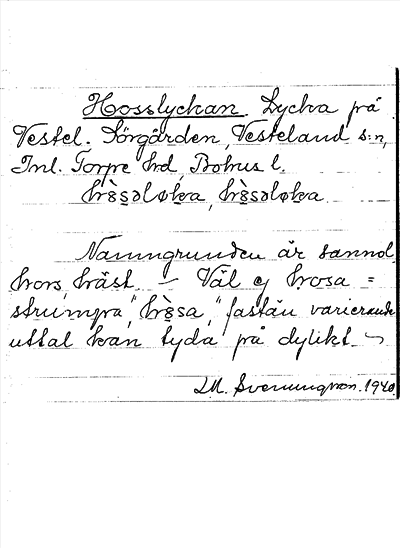 Hosslyckan. Lycka på
Vestel. Sörgården, Vesteland s:n,
Inl. Torpe hd, Bohus l.
Namngrunden är sannol.
hors, häst. – Väl ej hosa =
strumpa, fastän varierande
uttal kan tyda på dylikt. –
Svenningson. 1940